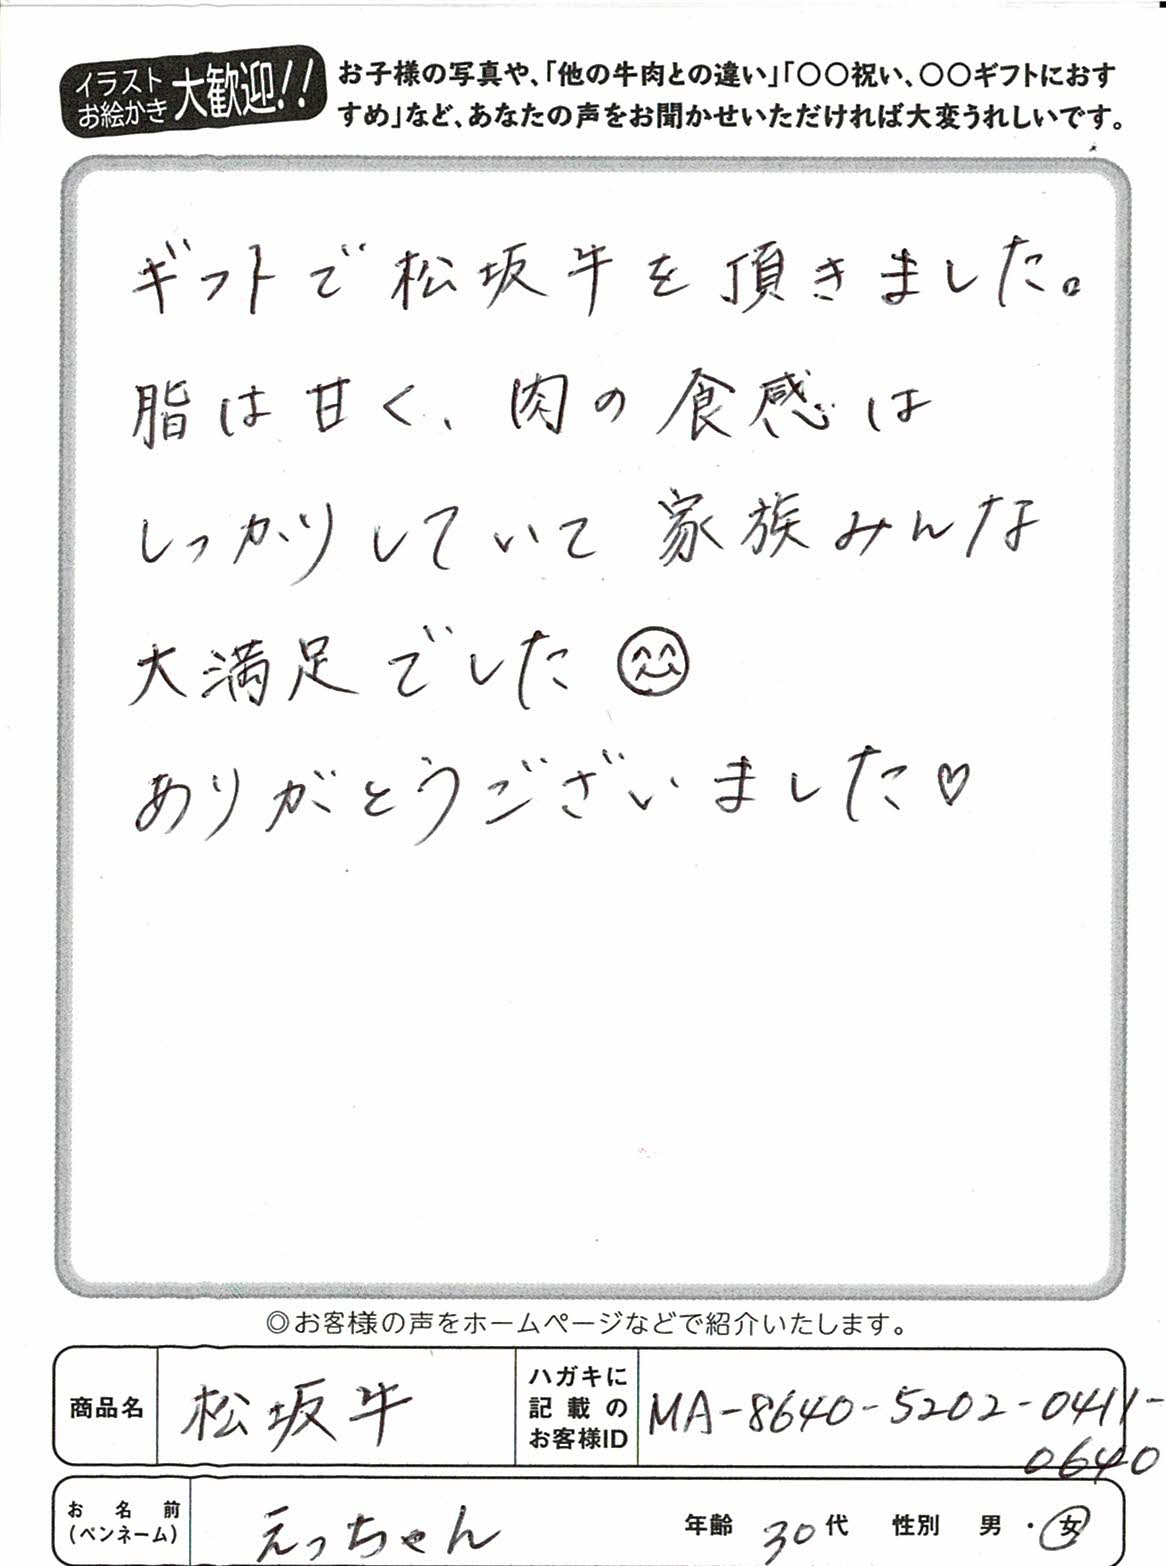 イラスト
お絵かき
大歓迎!!
お子様の写真や、「他の牛肉との違い」「〇〇祝い、〇〇ギフトにおす
すめ」など、あなたの声をお聞かせいただければ大変うれしいです。
ギフトで松坂牛を頂きました。
脂は甘く、肉の食感は
しっかりしていて家族みんな
大満足でした😊
ありがとうございました♡
◎お客様の声をホームページなどで紹介いたします。
商品名 松坂牛
ハガキに
記載の
お客様ID
MA-8640-5202-0411-
0640
お名前
(ペンネーム)
えっちゃん
年齢 30代 性別 男・女